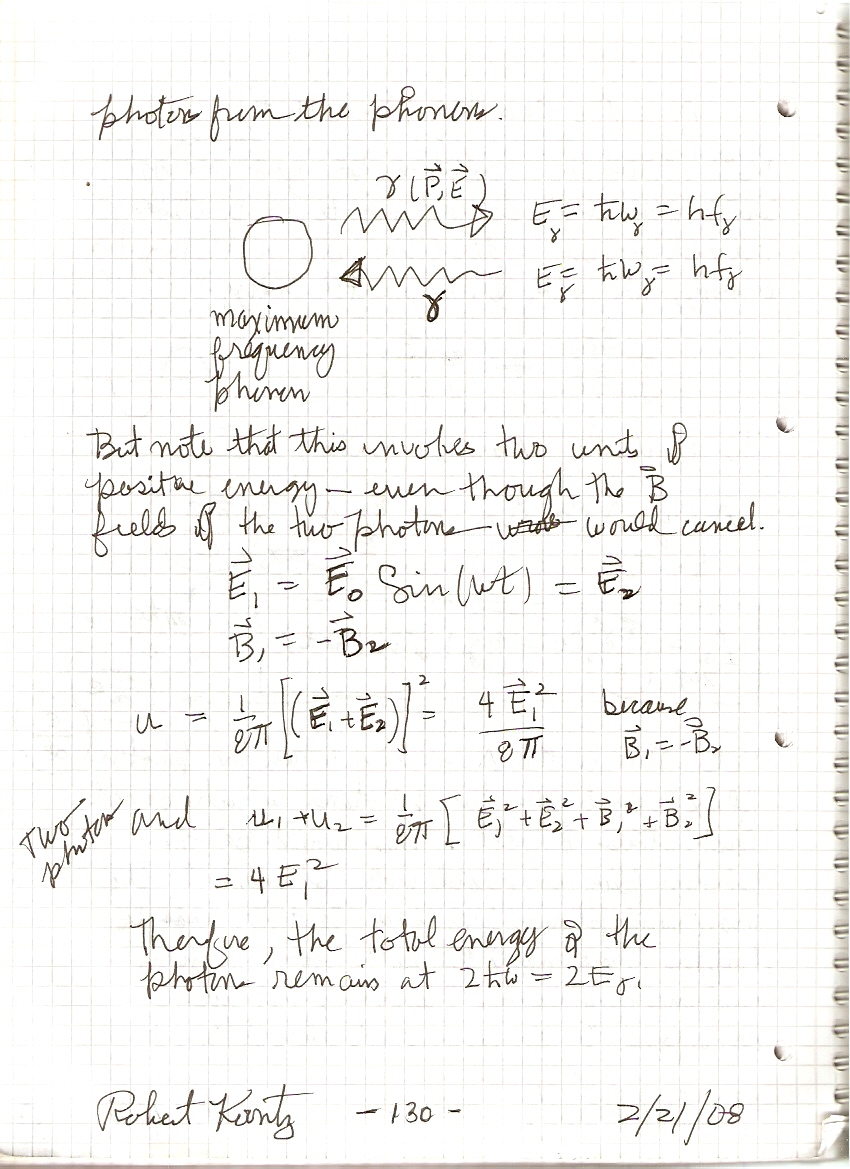 photons from the phonons.
γ(P⃗,E⃗)
E_γ = ħω_γ = hf_γ
E_γ = ħω_γ = hf_γ
γ
maximum
frequency
phonon
But note that this involves two units of
positive energy — even though the B⃗
fields of the two photons would cancel.
E⃗₁ = E⃗₀ Sin(ωt) = E⃗₂
B⃗₁ = -B⃗₂
u = 1/8π [(E⃗₁+E⃗₂)]² = 4E⃗₁²/8π because
B⃗₁ = -B⃗₂
two
photons
and u₁+u₂ = 1/8π [E⃗₁²+E⃗₂²+B⃗₁²+B⃗₂²]
= 4E₁²
Therefore, the total energy of the
photons remains at 2ħω = 2E_γ.
Robert -130- 2/21/08